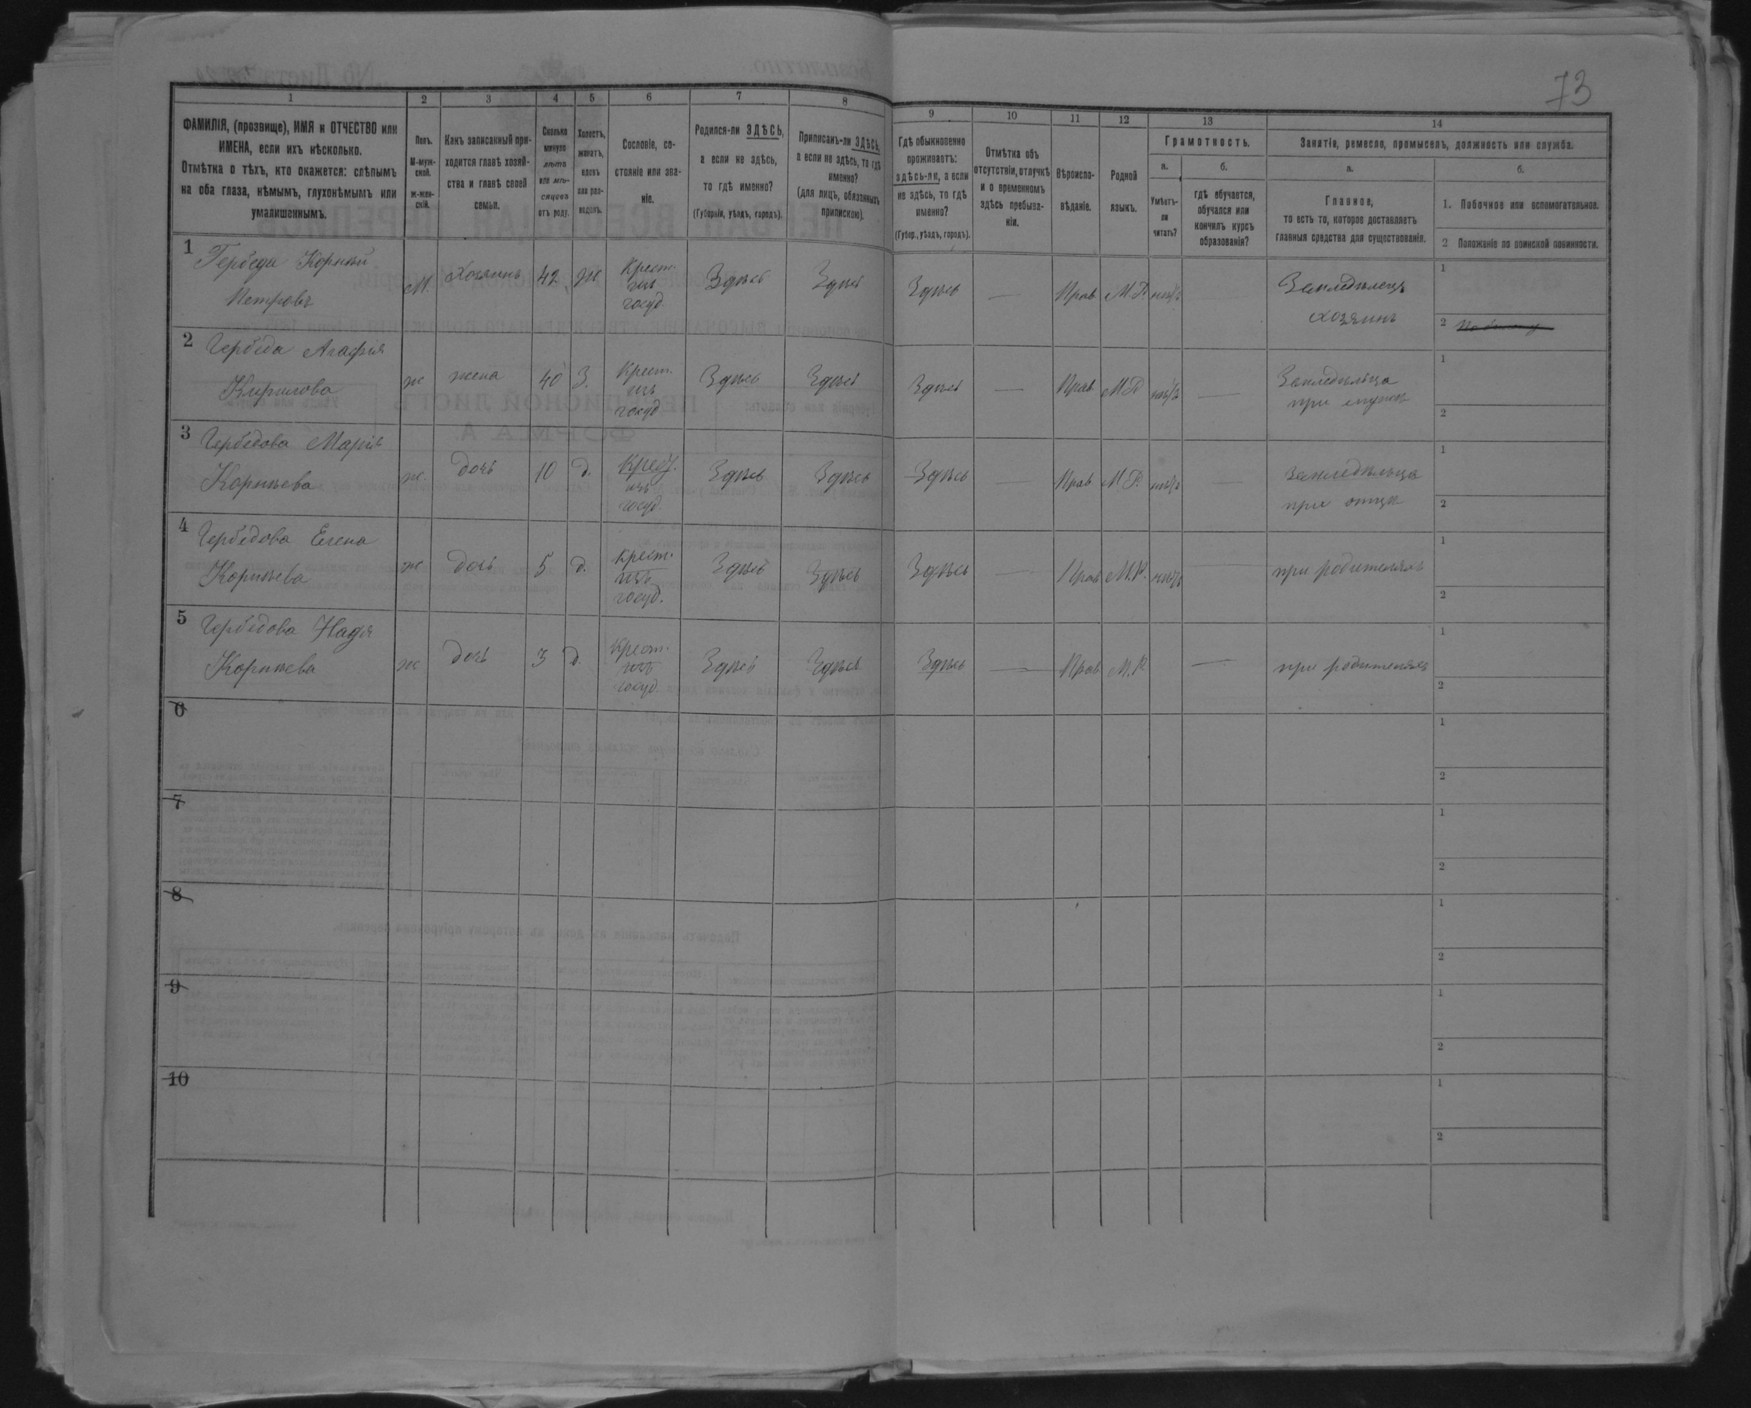 73
1 2 3 4 5 6 7 8 9 10 11 12 13 14
ФАМИЛІЯ, (прозвище), ИМЯ и ОТЧЕСТВО или
ИМЕНА, если ихъ нѣсколько.
Отмѣтка о тѣхъ, кто окажется: слѣпымъ
на оба глаза, нѣмымъ, глухонѣмымъ или
умалишеннымъ.
Полъ.
М-муж-
ской.
ж-жен-
скій.
Какъ записанный при-
ходится главѣ хозяй-
ства и главѣ своей
семьи.
Сколько
минуло
лѣтъ
или мѣ-
сяцевъ
отъ роду.
Холостъ,
женатъ,
вдовъ
или раз-
веденъ.
Сословіе, со-
стояніе или зва-
ніе.
Родился-ли ЗДѢСЬ,
а если не здѣсь,
то гдѣ именно?
(Губернія, уѣздъ, городъ).
Приписанъ-ли ЗДѢСЬ,
а если не здѣсь, то гдѣ
именно?
(для лицъ, обязанныхъ
припискою).
Гдѣ обыкновенно
проживаетъ:
здѣсь-ли, а если
не здѣсь, то гдѣ
именно?
(Губер., уѣздъ, городъ).
Отмѣтка объ
отсутствіи, отлучкѣ
и о временномъ
здѣсь пребыва-
ніи.
Вѣроиспо-
вѣданіе.
Родной
языкъ.
Грамотность.
а.
Умѣетъ-
ли
читать?
б.
гдѣ обучается,
обучался или
кончилъ курсъ
образованія?
Занятіе, ремесло, промыселъ, должность или служба.
а.
Главное,
то есть то, которое доставляетъ
главныя средства для существованія.
б.
1. Побочное или вспомогательное.
2 Положеніе по воинской повинности.
1 Гербеда Корній
Петровъ
М. Хозяинъ 42 ж Крест.
изъ
госуд.
Здѣсь Здѣсь Здѣсь — Прав М.Р. нѣтъ
Земледѣлецъ
хозяинъ
1
2
2 Гербеда Агафія
Кирилова
ж жена 40 З. Крест.
изъ
госуд
Здѣсь Здѣсь Здѣсь — Прав М.Р нѣтъ —
Земледѣлица
при мужѣ
1
2
3 Гербедова Марія
Корніева
ж. дочь 10 д. Крест.
изъ
госуд.
Здѣсь Здѣсь Здѣсь — Прав М.Р. нѣтъ —
земледѣлица
при отцѣ
1
2
4 Гербедова Елена
Корніева
ж дочь 5 д. Крест.
изъ
госуд.
Здѣсь Здѣсь Здѣсь — Прав М.Р. нѣтъ —
при родителяхъ
1
2
5 Гербедова Надя
Корніева
ж дочь 3 д Крест.
изъ
госуд
Здѣсь Здѣсь Здѣсь — Прав М.Р —
при родителяхъ
1
2
6
1
2
7
1
2
8
1
2
9
1
2
10
1
2